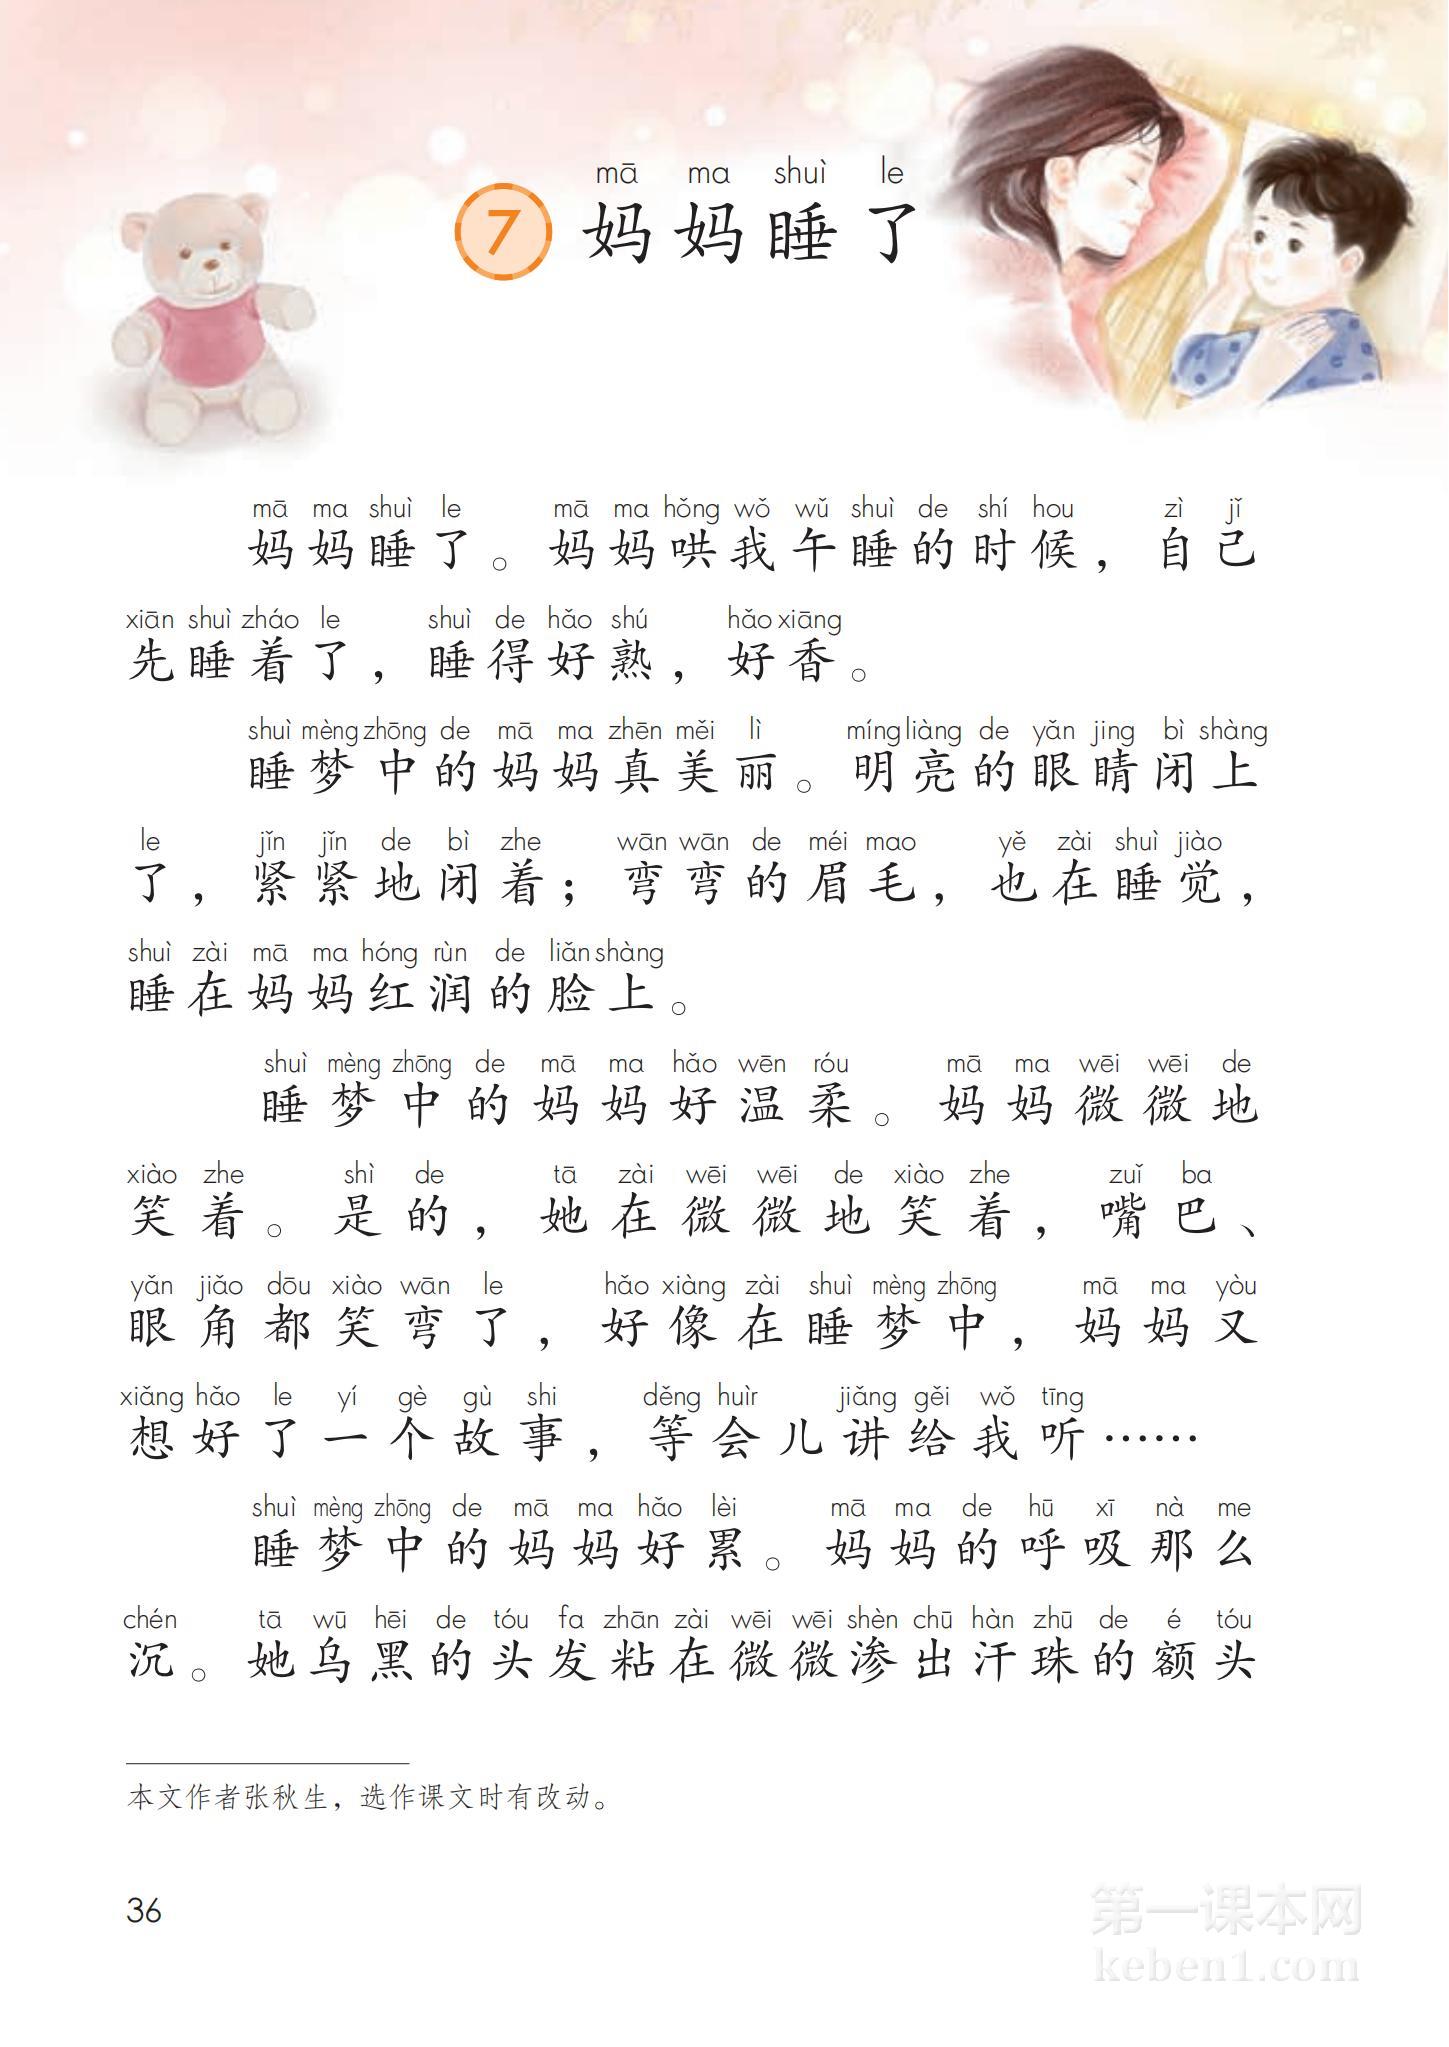 mā ma shuì le
7 妈妈睡了
mā ma shuì le mā ma hǒng wǒ wǔ shuì de shí hou zì jǐ
妈妈睡了。妈妈哄我午睡的时候，自己
xiān shuì zháo le shuì de hǎo shú hǎo xiāng
先睡着了，睡得好熟，好香。
shuì mèng zhōng de mā ma zhēn měi lì míng liàng de yǎn jing bì shàng
睡梦中的妈妈真美丽。明亮的眼睛闭上
le jǐn jǐn de bì zhe wān wān de méi mao yě zài shuì jiào
了，紧紧地闭着；弯弯的眉毛，也在睡觉，
shuì zài mā ma hóng rùn de liǎn shàng
睡在妈妈红润的脸上。
shuì mèng zhōng de mā ma hǎo wēn róu mā ma wēi wēi de
睡梦中的妈妈好温柔。妈妈微微地
xiào zhe shì de tā zài wēi wēi de xiào zhe zuǐ ba
笑着。是的，她在微微地笑着，嘴巴、
yǎn jiǎo dōu xiào wān le hǎo xiàng zài shuì mèng zhōng mā ma yòu
眼角都笑弯了，好像在睡梦中，妈妈又
xiǎng hǎo le yí gè gù shi děng huìr jiǎng gěi wǒ tīng
想好了一个故事，等会儿讲给我听……
shuì mèng zhōng de mā ma hǎo lèi mā ma de hū xī nà me
睡梦中的妈妈好累。妈妈的呼吸那么
chén tā wū hēi de tóu fa zhān zài wēi wēi shèn chū hàn zhū de é tóu
沉。她乌黑的头发粘在微微渗出汗珠的额头
本文作者张秋生，选作课文时有改动。
36
第一课本网
keben1.com